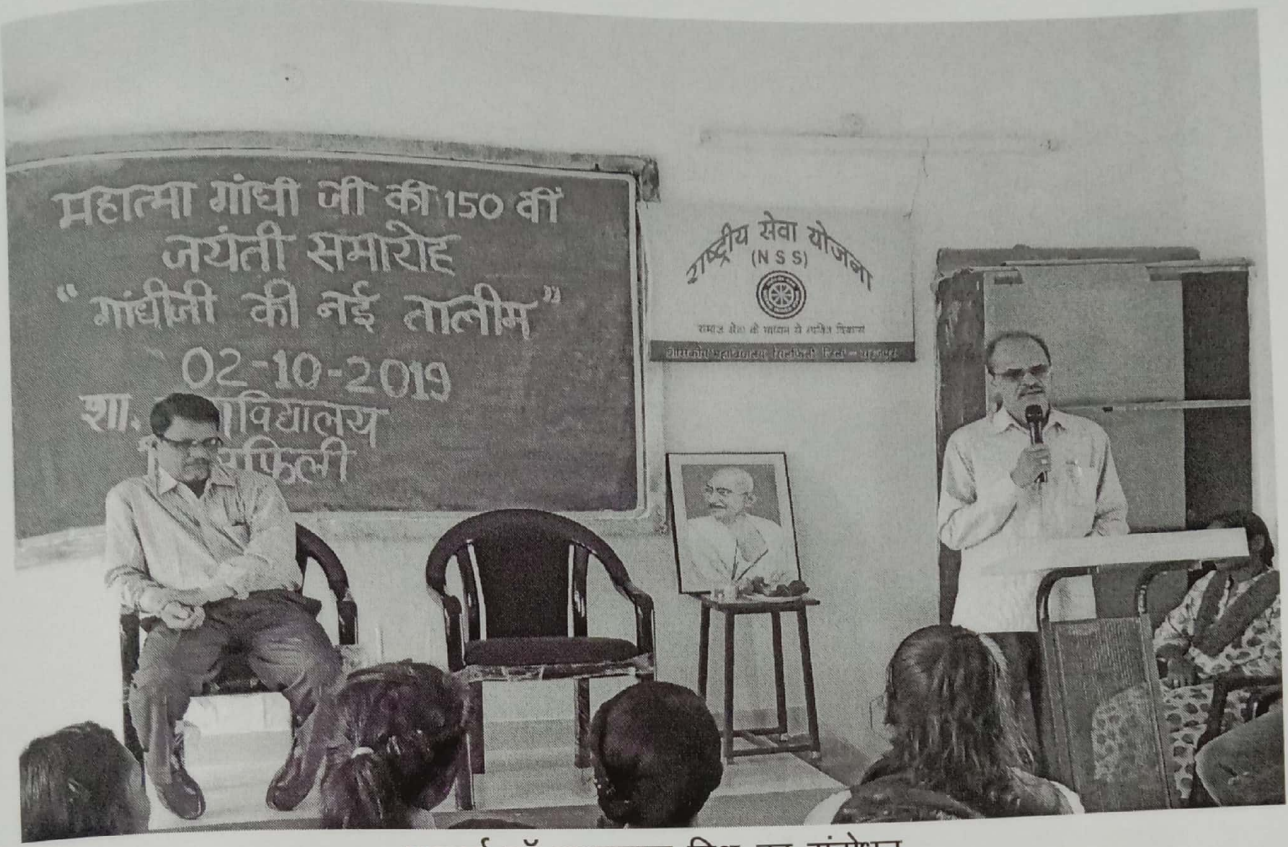 महात्मा गांधी जी की 150 वीं
जयंती समारोह
“गांधीजी की नई तालीम”
02-10-2019
शा. विद्यालय
फिली
राष्ट्रीय सेवा योजना
(NSS)
समाज सेवा के माध्यम से व्यक्तित्व विकास
संबोधन